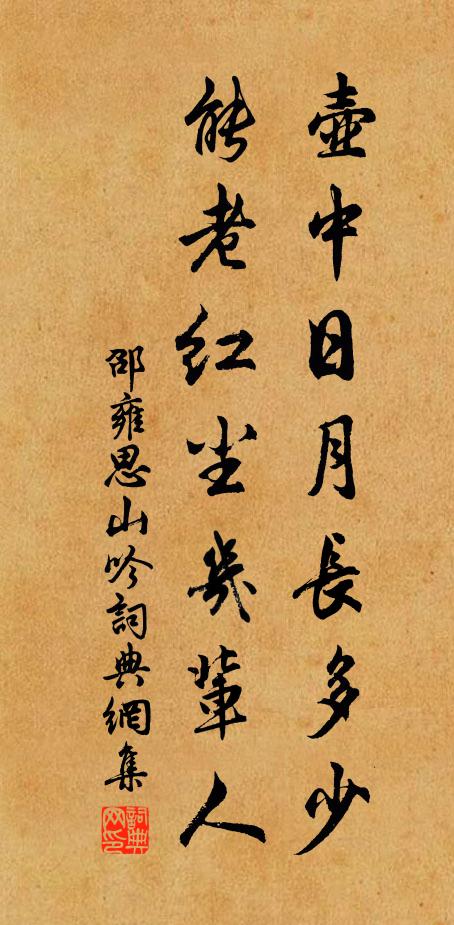 壺中日月長多少
能老紅尘幾軰人
邵雍思山吟詞典網集
詞典網印